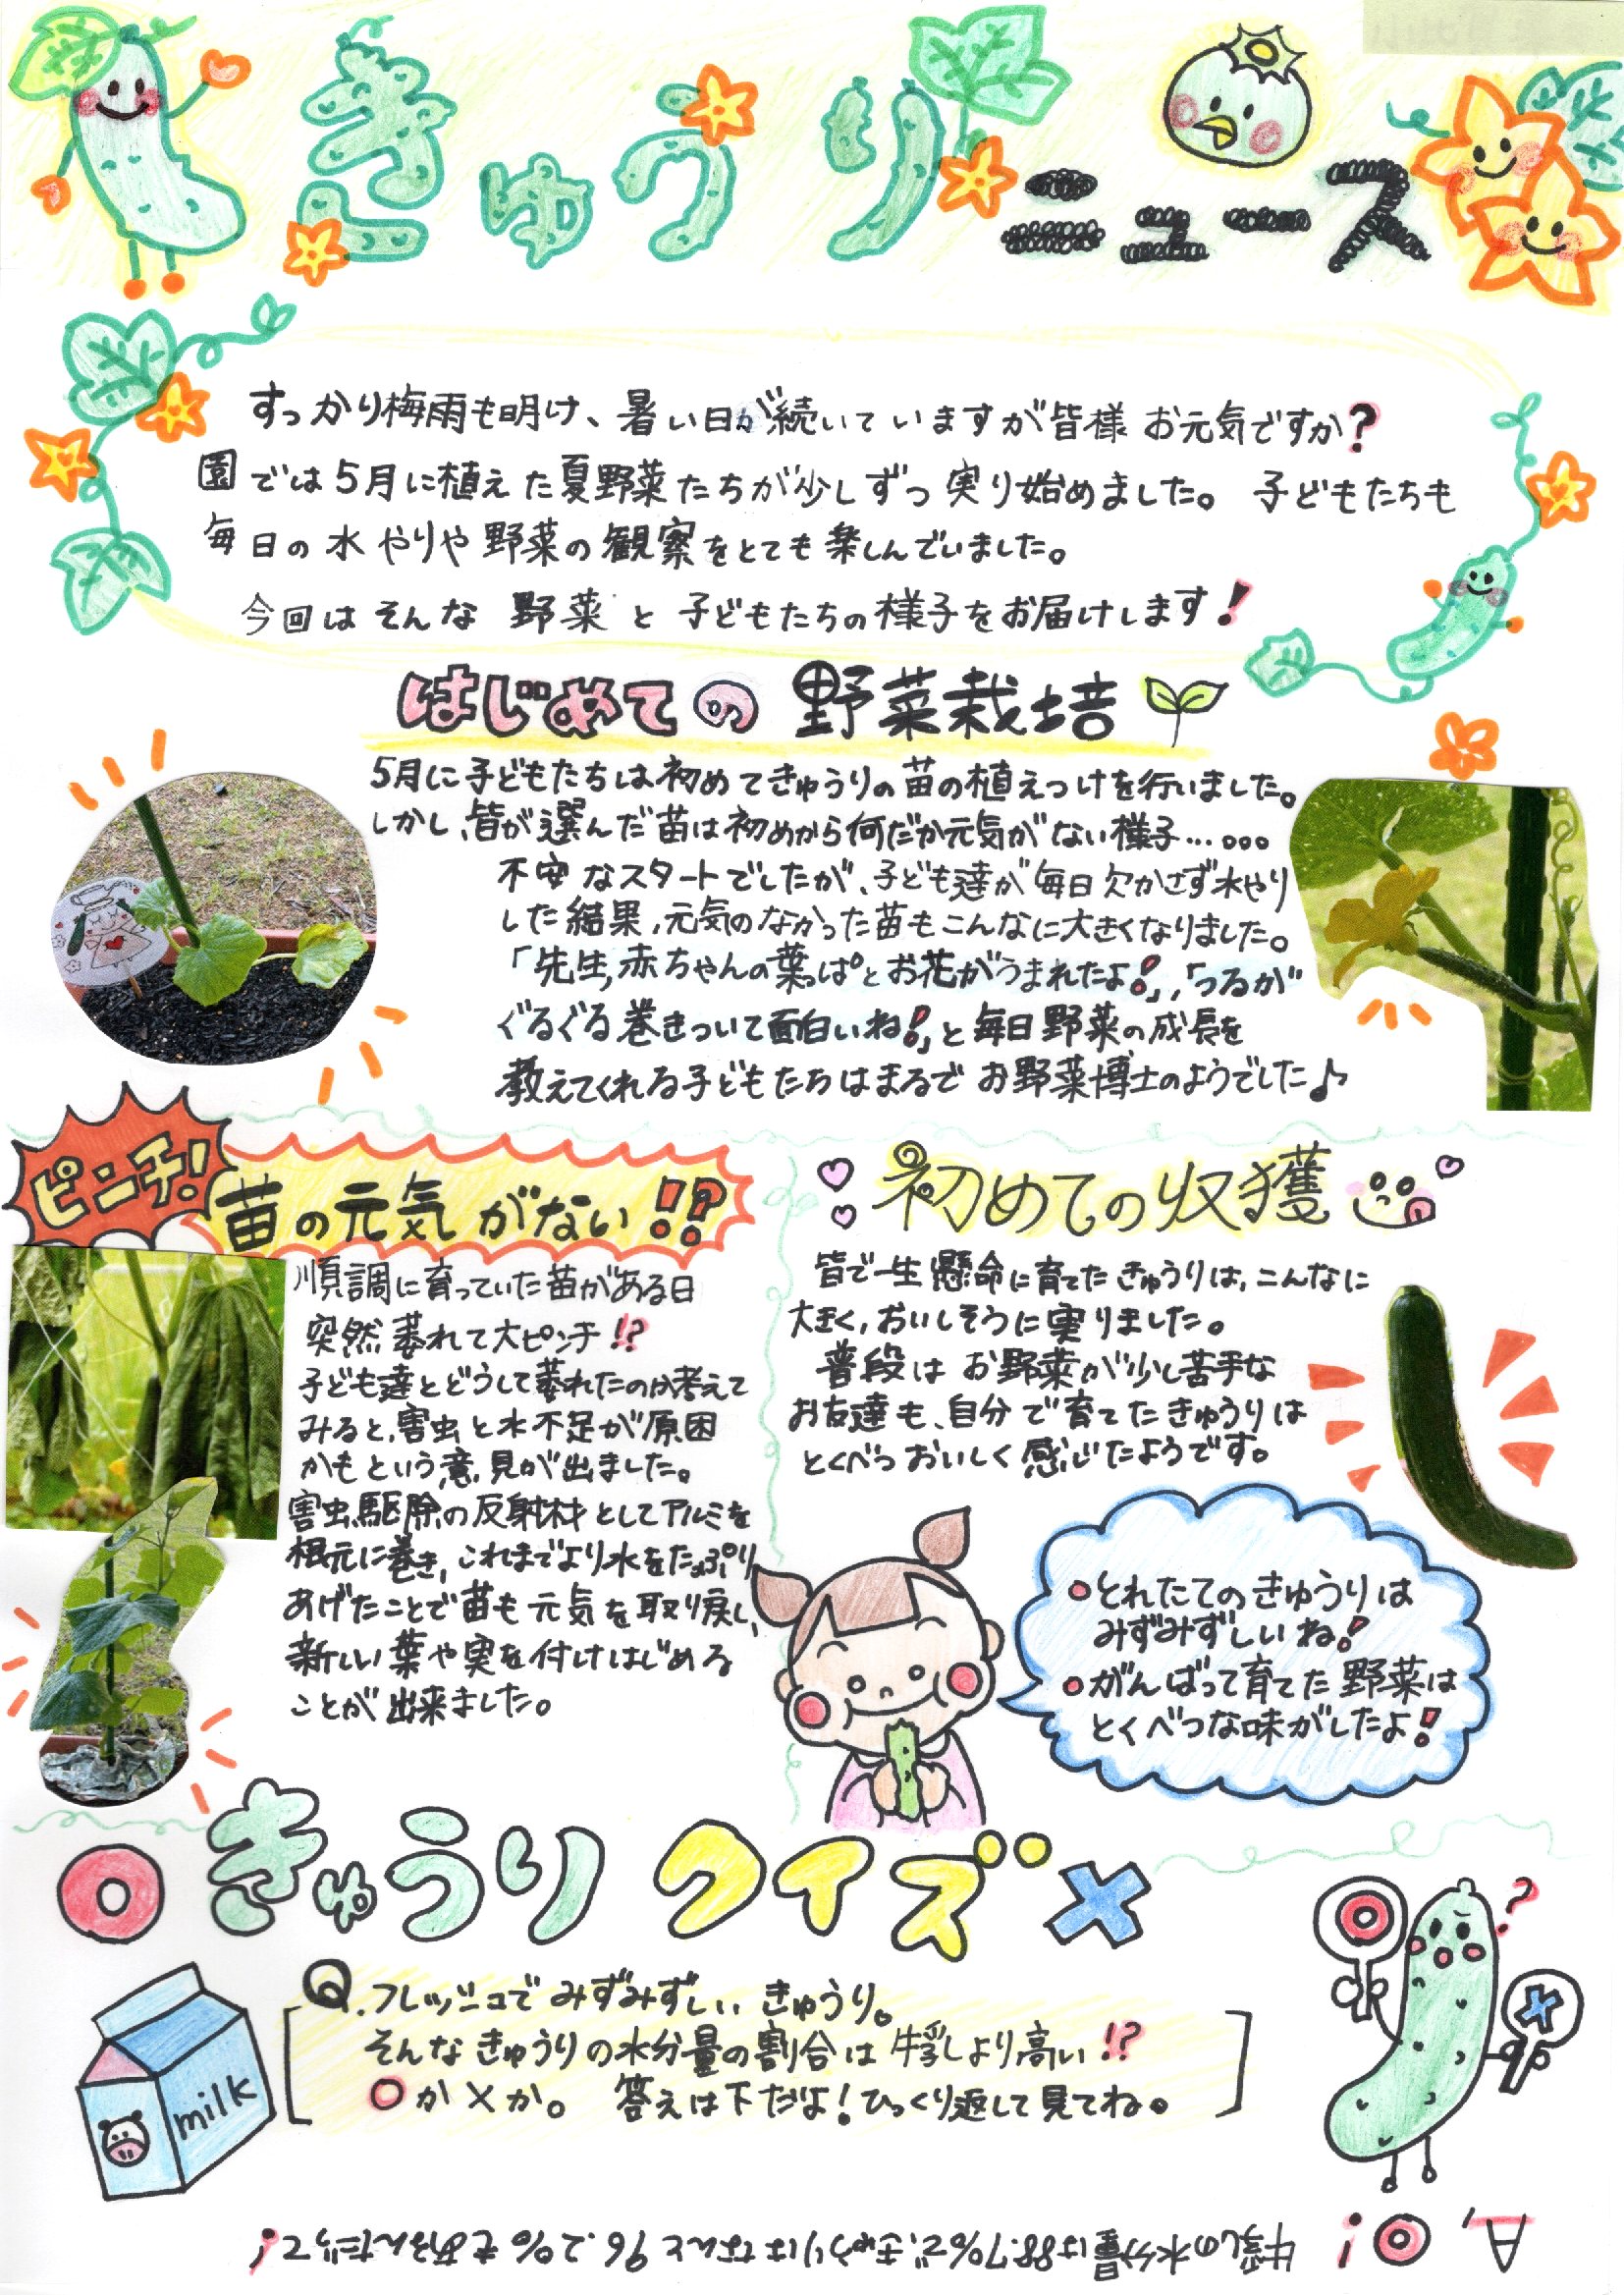 きゅうりニュース
すっかり梅雨も明け、暑い日が続いていますが皆様お元気ですか?
園では5月に植えた夏野菜たちが少しずつ実り始めました。子どもたちも
毎日の水やりや野菜の観察をとても楽しんでいました。
今回はそんな野菜と子どもたちの様子をお届けします!
はじめての野菜栽培
5月に子どもたちは初めてきゅうりの苗の植えつけを行いました。
しかし、皆が選んだ苗は初めから何だか元気がない様子……。
不安なスタートでしたが、子ども達が毎日欠かさず水やり
した結果、元気のなかった苗もこんなに大きくなりました。
「先生、赤ちゃんの葉っぱとお花がうまれたよ!」、「つるが
ぐるぐる巻きついて面白いね!」と毎日野菜の成長を
教えてくれる子どもたちはまるでお野菜博士のようでした♪
ピンチ!
苗の元気がない!?
順調に育っていた苗がある日
突然萎れて大ピンチ!?
子ども達とどうして萎れたのか考えて
みると、害虫と水不足が原因
かもという意見が出ました。
害虫駆除の反射材としてアルミを
根元に巻き、これまでより水をたっぷり
あげたことで苗も元気を取り戻し、
新しい葉や実を付けはじめる
ことが出来ました。
初めての収獲
皆で一生懸命に育てたきゅうりは、こんなに
大きく、おいしそうに実りました。
普段はお野菜が少し苦手な
お友達も、自分で育てたきゅうりは
とくべつおいしく感じたようです。
○とれたてのきゅうりは
みずみずしいね!
○がんばって育てた野菜は
とくべつな味がしたよ!
○きゅうりクイズ×
Q.フレッシュでみずみずしいきゅうり。
そんなきゅうりの水分量の割合は牛乳より高い!?
○か×か。 答えは下だよ!ひっくり返して見てね。
milk
A, ○!
牛乳の水分量は88.7%で、きゅうりはなんと96.2%もあるんだって!